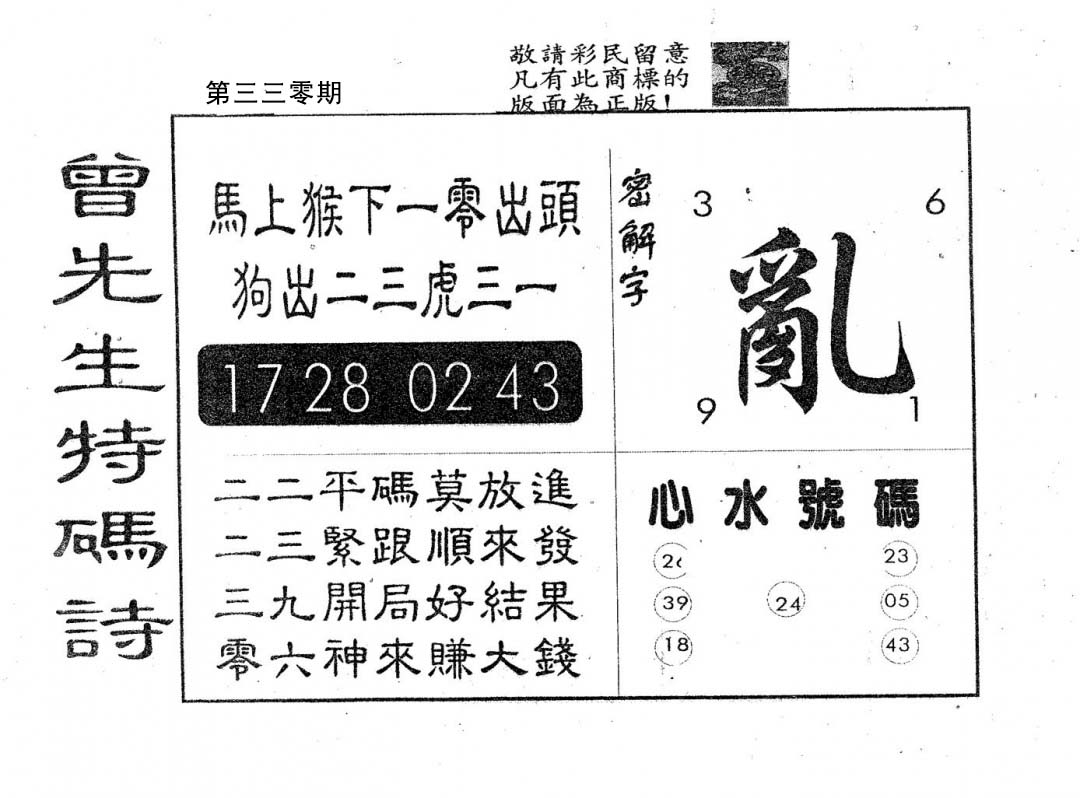 敬請彩民留意
凡有此商標的
版面為正版!
第三三零期
曾先生特碼詩
馬上猴下一零出頭
狗出二三虎三一
17 28 02 43
密解字
3 6
亂
9 1
二二平碼莫放進
二三緊跟順來發
三九開局好結果
零六神來賺大錢
心水號碼
26 23
39 24 05
18 43